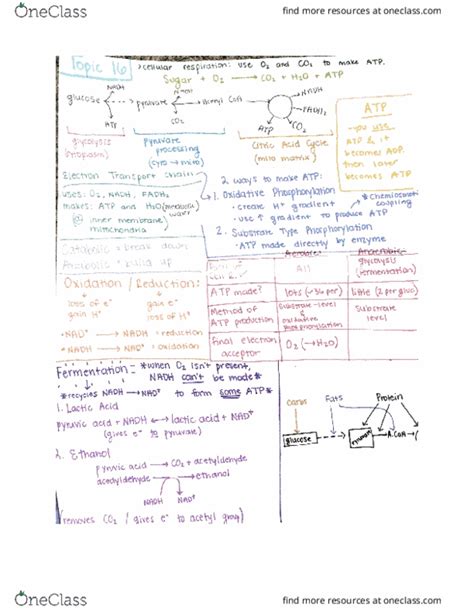 OneClass
find more resources at oneclass.com
Topic 16
>cellular respiration: use O2 and CO2 to make ATP.
Sugar + O2 → CO2 + H2O + ATP
NADH
NADH
NADH
glucose
pyruvate
Acetyl CoA
FADH2
ATP
CO2
ATP
CO2
glycolysis
(cytoplasm)
Pyruvate
processing
(cyto → mito)
Citric Acid Cycle
(mito matrix)
ATP
you use
ATP & it
becomes ADP
then later
becomes ATP
Electron Transport chain:
uses: O2, NADH, FADH2
makes: ATP and H2O (metabolic water)
@ inner membrane
mitochondria
2 ways to make ATP:
1. Oxidative Phosphorylation
- create H+ gradient
- use ↑ gradient to produce ATP
*Chemiosmotic
coupling
2. Substrate Type Phosphorylation
- ATP made directly by enzyme
Catabolic = break down
Anabolic = build up
Oxidation
Reduction:
loss of e-
gain H+
gain e-
loss of H+
*NAD+ → NADH : reduction
*NADH → NAD+ : oxidation
Aerobic
Anaerobic
All
glycolysis
(fermentation)
ATP made?
lots (~36 per)
little (2 per gluc)
Method of
ATP production
Substrate-level
&
oxidative
phosphorylation
Substrate
level
Final electron
acceptor
O2 (→H2O)
Fermentation: *when O2 isn't present,
NADH can't be made*
*recycles NADH → NAD+ to form some ATP*
1. Lactic Acid
pyruvic acid + NADH ↔ lactic acid + NAD+
(gives e- to pyruvate)
2. Ethanol
pyruvic acid → CO2 + acetyldehyde
acetyldehyde → ethanol
NADH NAD+
(removes CO2 / gives e- to acetyl group)
Carbs
Fats
Protein
glucose
pyruvate
A.CoA
OneClass
find more resources at oneclass.com